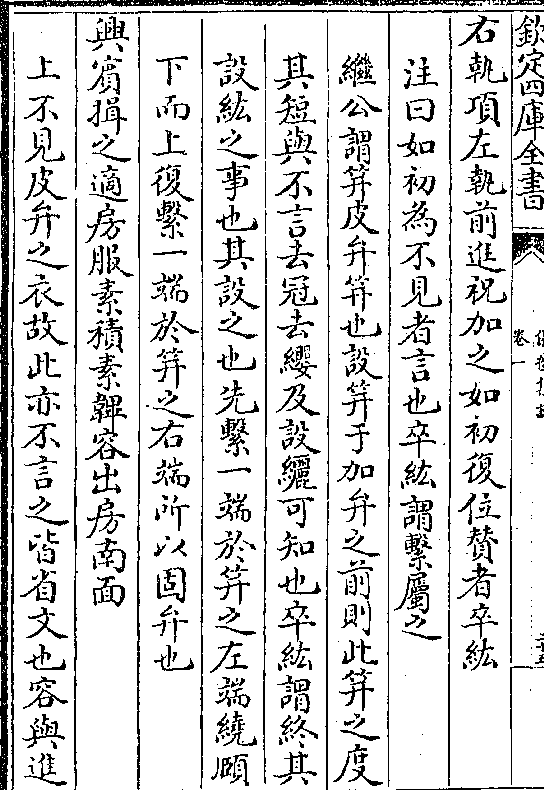 欽定四庫全書
卷一
右執項左執前進祝加之如初復位贊者卒紘
注曰如初為不見者言也卒紘謂繫屬之
繼公謂笄皮弁笄也設笄于加弁之前則此笄之度
其短與不言去冠去纓及設纚可知也卒紘謂終其
設紘之事也其設之也先繫一端於笄之左端繞頤
下而上復繫一端於笄之右端所以固弁也
興賓揖之適房服素積素韠容出房南面
上不見皮弁之衣故此亦不言之皆省文也容與進